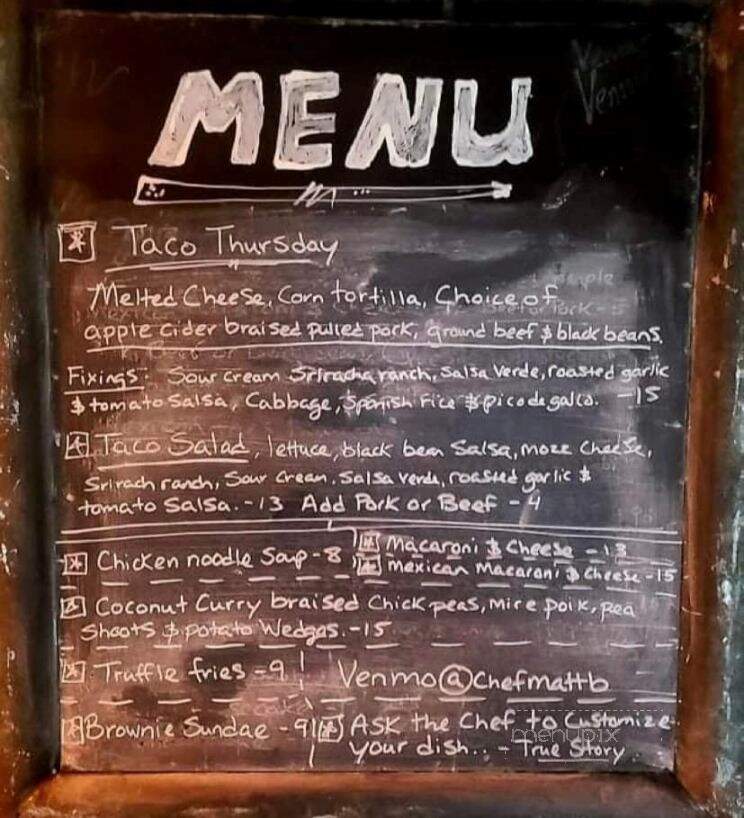 Venmo
MENU
Taco Thursday
Melted Cheese, Corn tortilla, Choice of
apple cider braised pulled pork, ground beef & black beans.
Fixings: Sour cream Sriracha ranch, Salsa Verde, roasted garlic
& tomato Salsa, Cabbage, Spanish rice & pico de gallo. -15
Taco Salad, lettuce, black bean Salsa, moze cheese,
Srirach ranch, Sour cream, Salsa Verde, roasted garlic &
tomato Salsa. -13 Add Pork or Beef - 4
Chicken noodle Soup - 8
Macaroni & cheese - 13
mexican Macaroni & cheese - 15
Coconut Curry braised Chick peas, mire poix, pea
Shoots & potato Wedges. -15
Truffle fries - 9
Venmo@chefmattb
Brownie Sundae - 9
ASK the chef to Customize
your dish.. - True Story
menupix